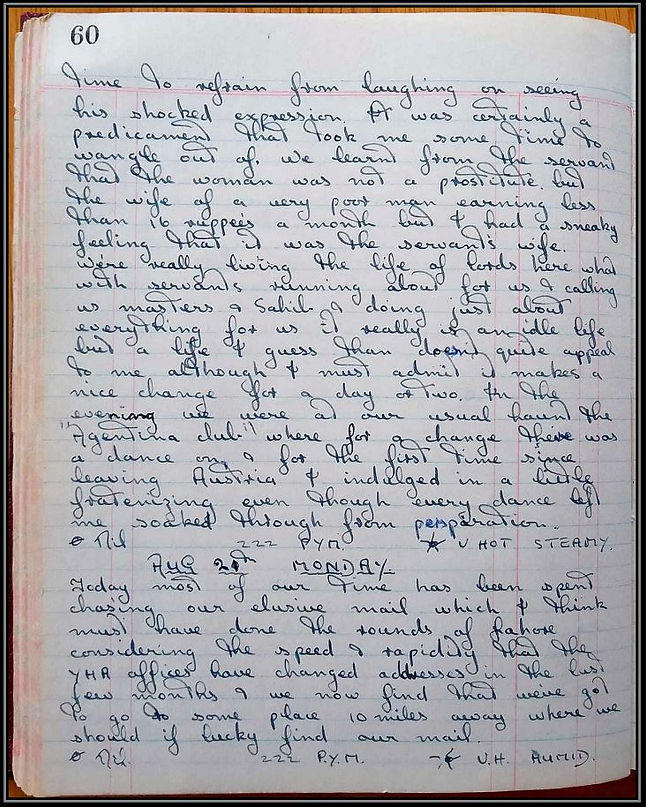 60
time to refrain from laughing on seeing
his shocked expression. It was certainly a
predicament that took me some time to
wangle out of. We learnt from the servant
that the woman was not a prostitute but
the wife of a very poor man earning less
than 16 ruppees a month but I had a sneaky
feeling that it was the servant's wife.
We're really living the life of lords here what
with servants running about for us & calling
us masters & Sahib & doing just about
everything for us it really is an idle life
but a life I guess than doesn't quite appeal
to me although I must admit it makes a
nice change for a day or two. In the
evening we were at our usual haunt the
"Agentina club" where for a change there was
a dance on, & for the first time since
leaving Austria I indulged in a little
fratenizing even though every dance left
me soaked through from persperation.
Nil 222 P.Y.M. V HOT STEAMY.
AUG 21th MONDAY
Today most of our time has been spent
chasing our elusive mail which I think
must have done the rounds of Lahore
considering the speed & rapidity that the
YHA offices have changed addresses in the last
few months & we now find that we've got
to go to some place 10 miles away where we
should if lucky find our mail.
Nil. 222 P.Y.M. V.H. HUMID.